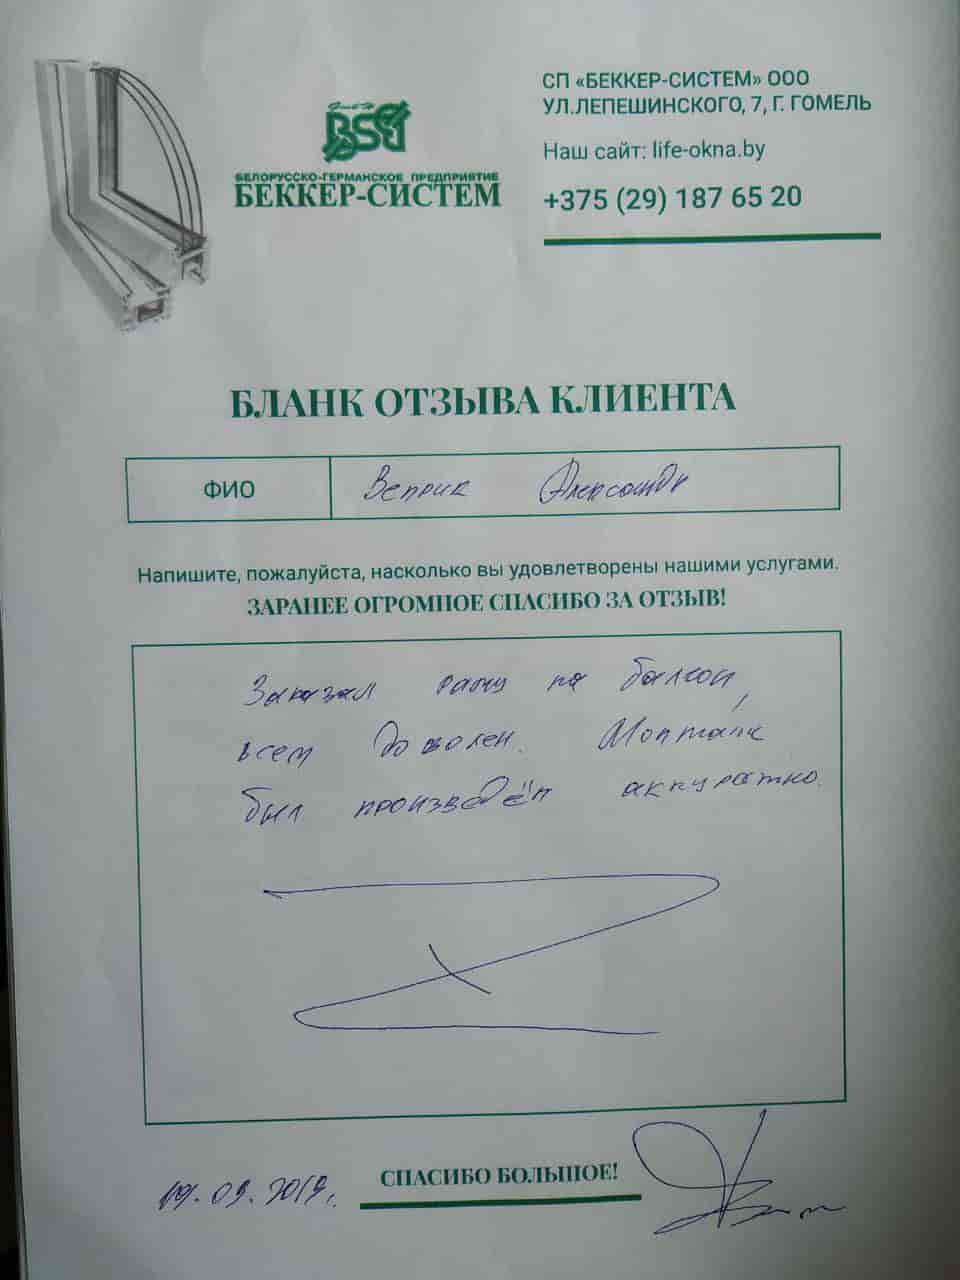 СП «БЕККЕР-СИСТЕМ» ООО
УЛ.ЛЕПЕШИНСКОГО, 7, Г. ГОМЕЛЬ
Наш сайт: life-okna.by
+375 (29) 187 65 20
GmbH
BSG
БЕЛОРУССКО-ГЕРМАНСКОЕ ПРЕДПРИЯТИЕ
БЕККЕР-СИСТЕМ
БЛАНК ОТЗЫВА КЛИЕНТА
ФИО Веприк Александр
Напишите, пожалуйста, насколько вы удовлетворены нашими услугами.
ЗАРАНЕЕ ОГРОМНОЕ СПАСИБО ЗА ОТЗЫВ!
Заказал раму на балкон,
всем доволен. Монтаж
был произведён аккуратно.
СПАСИБО БОЛЬШОЕ!
09.2019г.